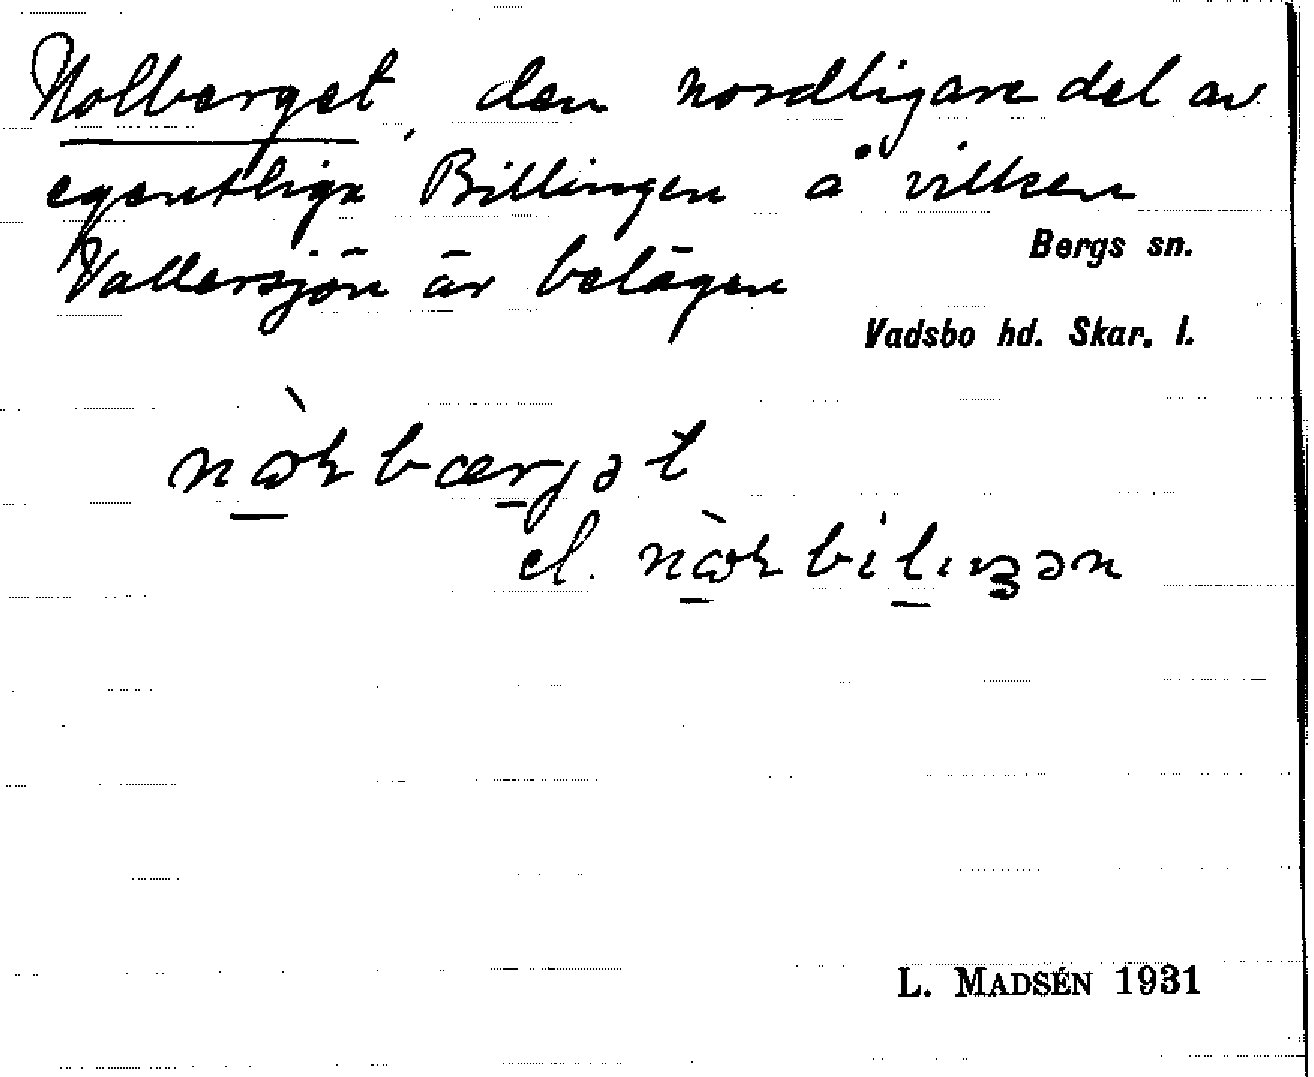 Nolberget, den nordligare del av
egentliga Billingen å vilken
Bergs sn.
Vallersjön är belägen
Vadsbo hd. Skar. l.
el.
L. MADSÉN 1931